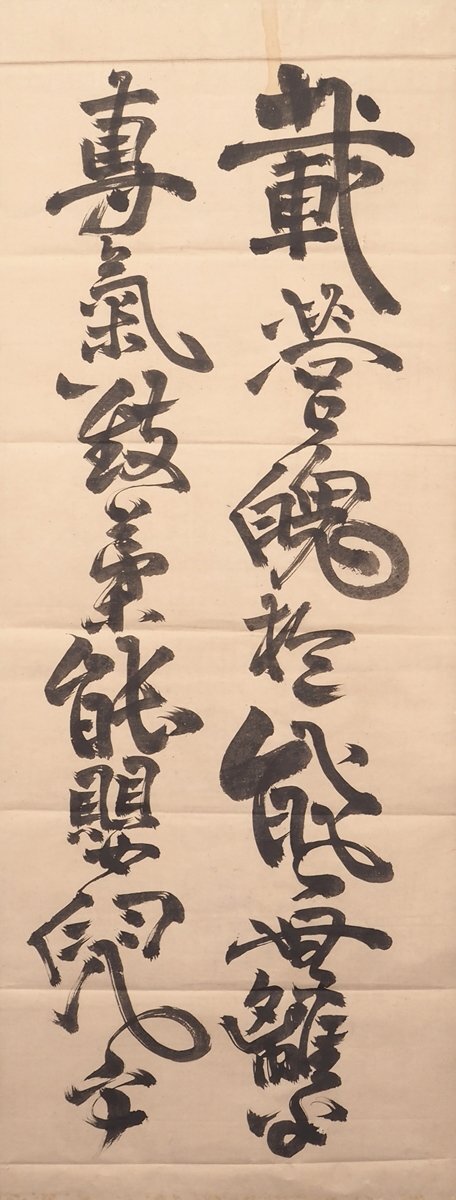 載營魄抱一能無離乎
專氣致柔能嬰兒乎